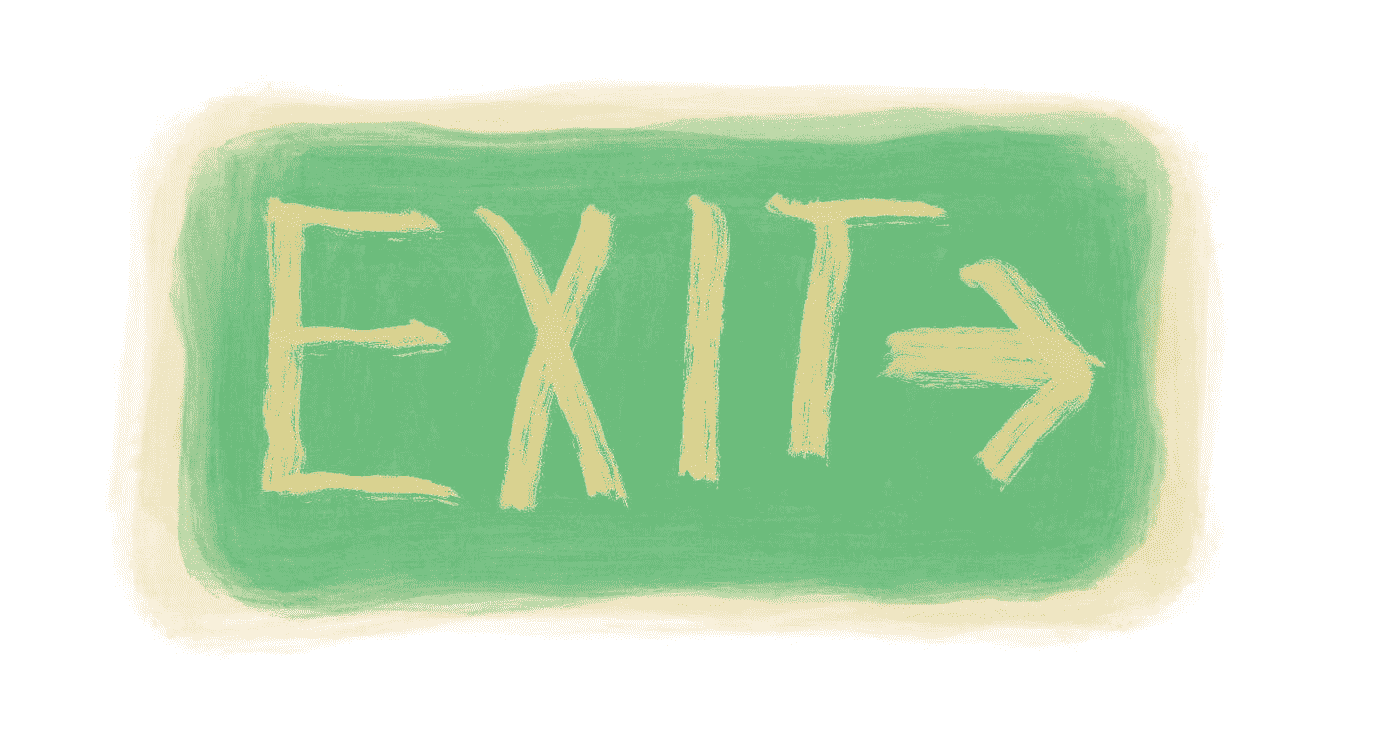 EXIT→